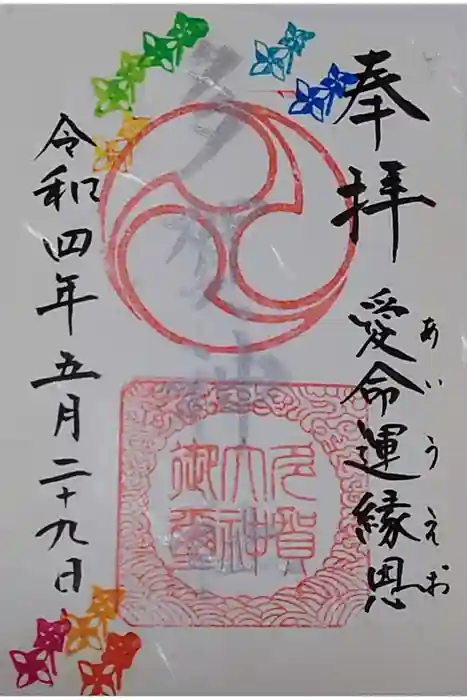 奉拝
愛命運縁恩
あいうえお
多賀
大神
御璽
令和四年五月二十九日